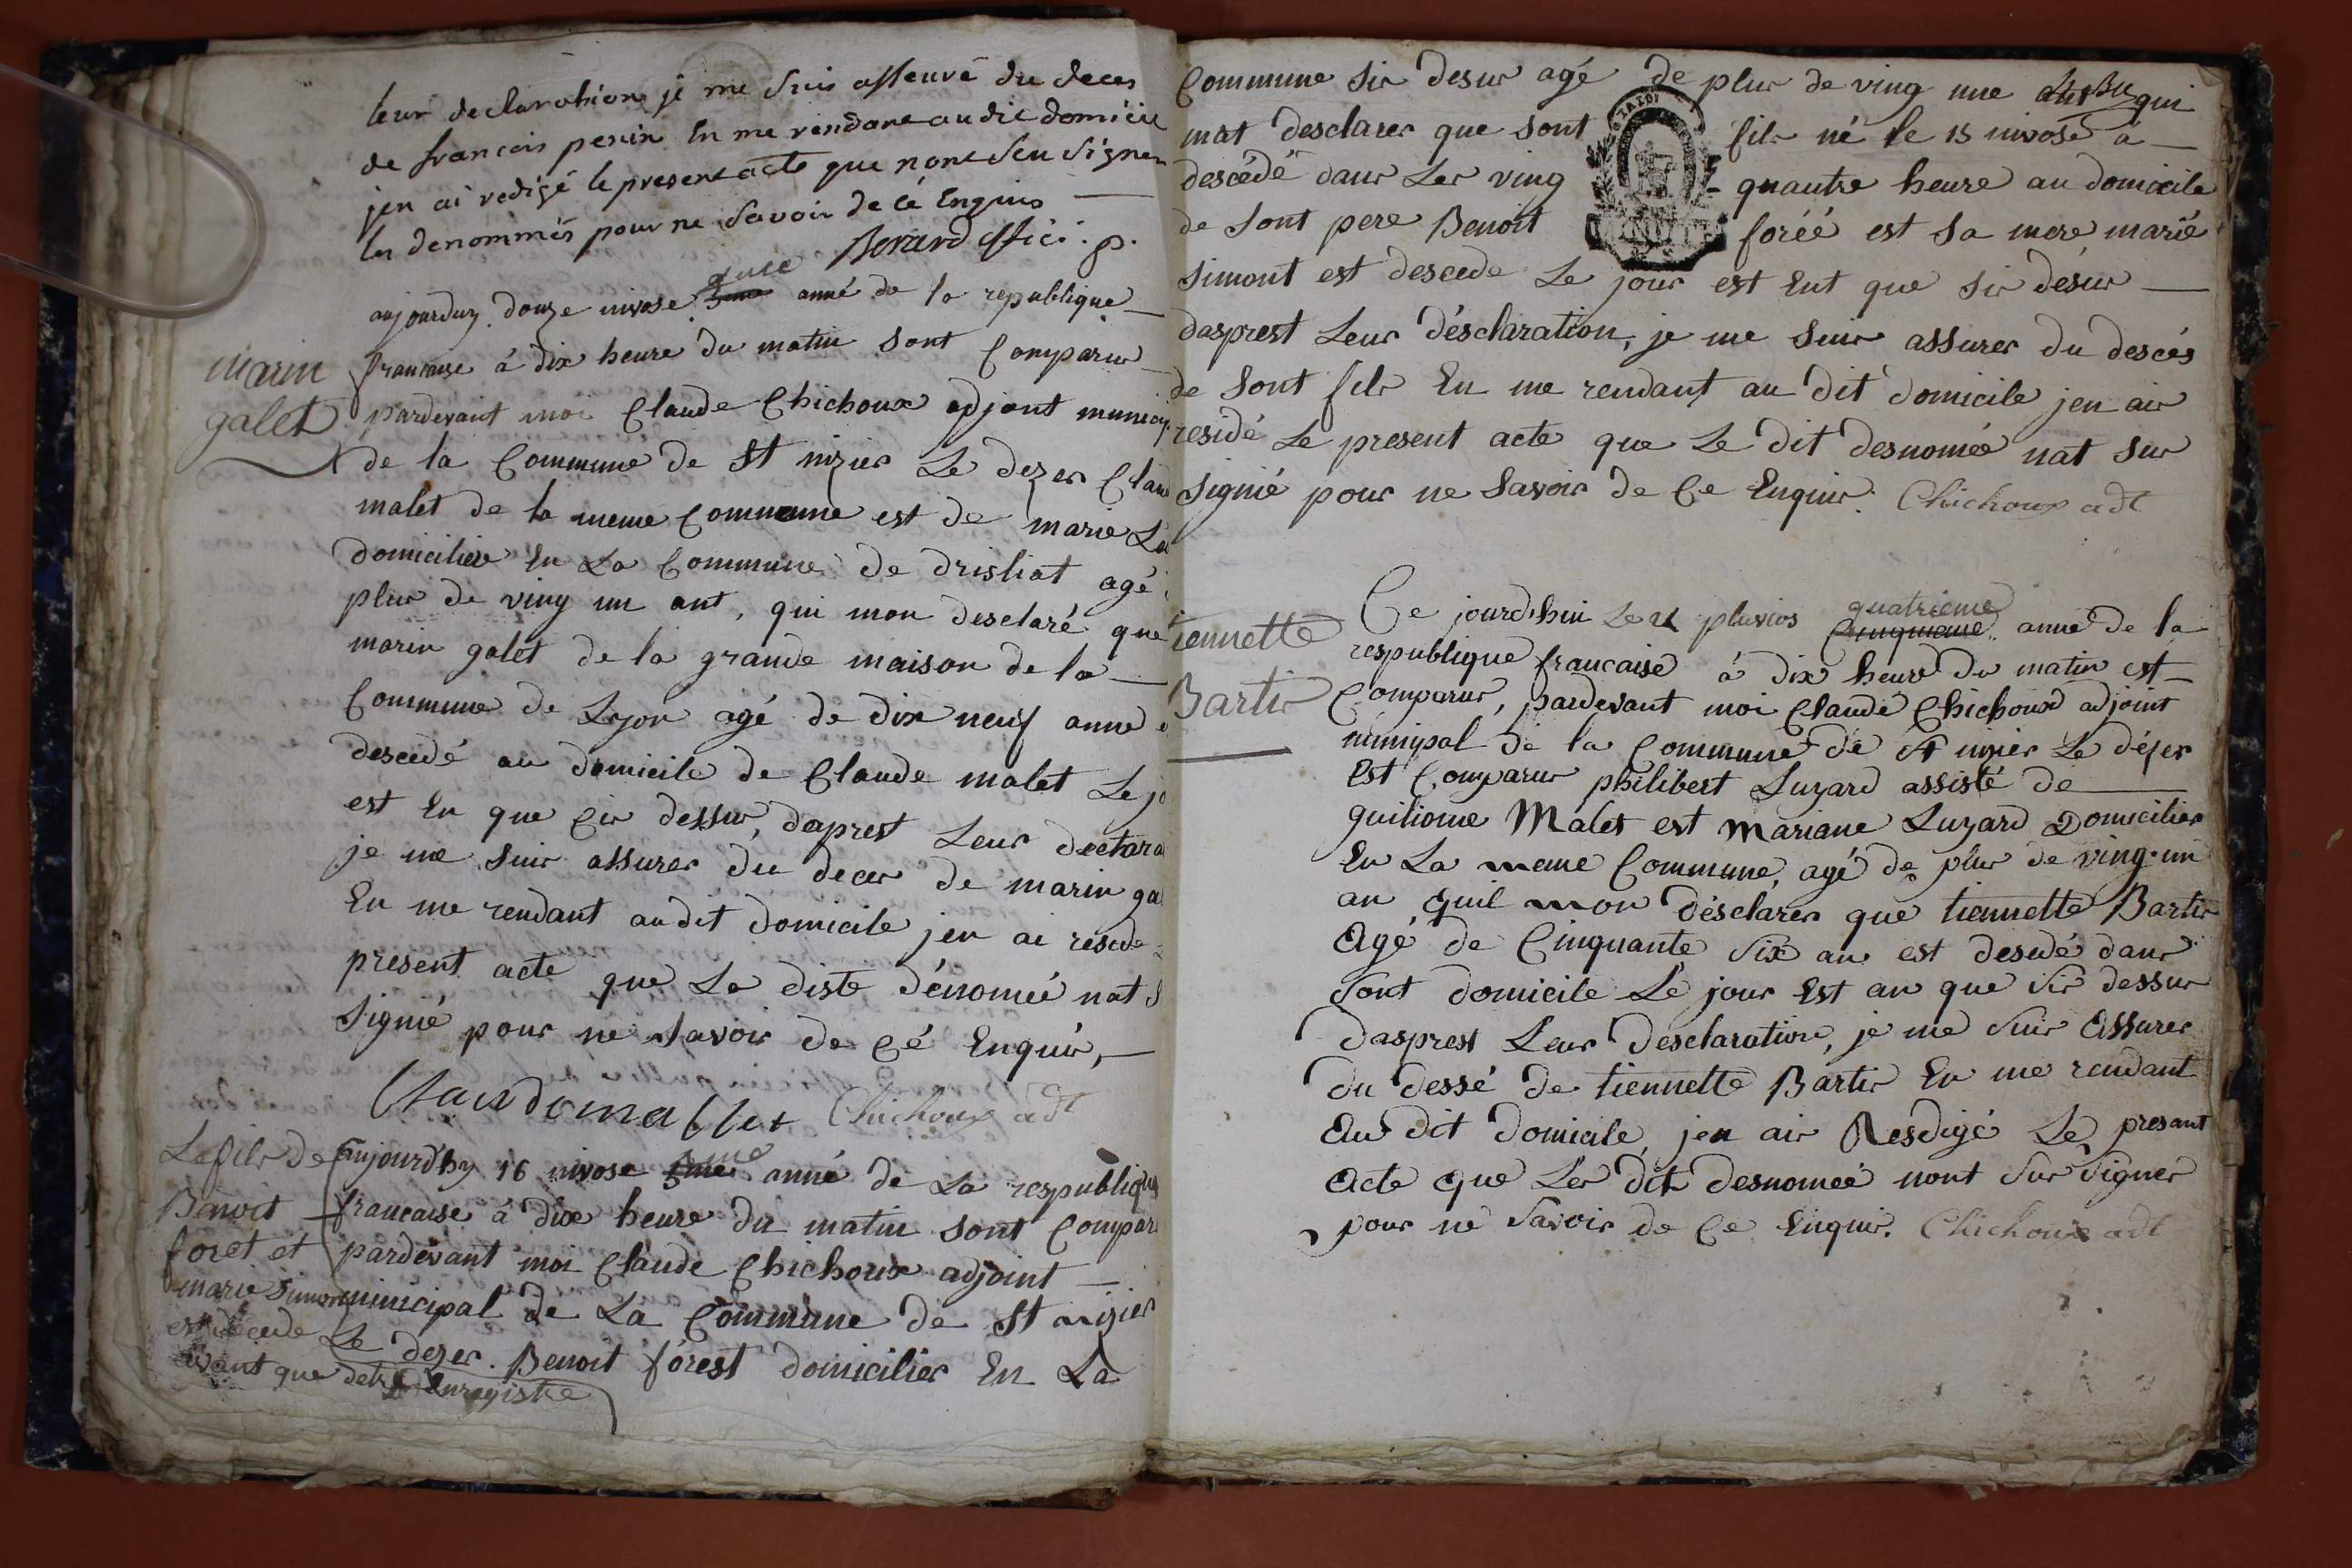 leur declarohion je me suis asseuré du deces
de francois perrin En me rendant audit domicile
jen ai redigé le present acte que nont seu signer
les denommés pour ne savoir de cé Enquis
Borard offici. p.
aujourduy douze nivose 4me 5me anné de la republique
marin
galet
francaise à dix heure du matin sont Comparus
pardevant moi Claude Chichoux adjont municip
de la Commune de St nizier Le dezer Claud
malet de la meme Commune est de marie La
domiciliée En La Commune de drisliat agé
plus de ving un ant, qui mon desclaré que
marin galet de la grande maison de la
Commune de Lyon agé de dix neuf anné
descedé au domicile de Claude malet Le jo
est En que Cis dessus, daprest Leur declara
je me suis assurer du deces de marin ga
En me rendant audit domicile jen ai resede
present acte que Le diste dénomée nat s
signié pour ne savoir de Cé Enquis,
Claudomallet Chichoux adt
Le fils de
Benoit
foret et
marie simon
est decede
avant que detre Enregistre
aujourdhy 16 nivose 4me 5me anné de La respublique
francaise à dix heure du matin sont Compar
pardevant moi Claude Chichoux adjoint
minicipal de La Commune de St nizier
Le dezer. Benoit forest domicilier En La
Commune sis desus agé de plus de ving une qui
mat desclarer que sont fils né le 15 nivose à
descédé dans Les ving quautre heure au domicile
de sont pere Benoit foréé est sa mere marié
simont est descede Le jour est Ent que sis désus
dasprest Leur désclaration, je me suis assurer du descés
de sont fils En me rendant au dit domicile jen ais
residé Le present acte que Le dit desnomée nat sus
signié pour ne savoir de Ce Enquis. Chichoux adt
tiennette
Bartis
Ce jourdhui Le 21 pluvios quatrieme Cinquieme année de la
respublique francaise à dix heure du matin est
Comparus, pardevant moi Claude Chichoux adjoint
minipal de la Commune de St nizier Le dézer
Est Comparus philibert Luzard assisté de
guiliome Malet est Mariane Luzard Domicilier
En La meme Commune, agé de plus de ving un
an quil mon désclarer que tiennette Bartis
Agé de Cinquante six an est desedé dans
sont domicile Le jour Est an que sis dessus
dasprest Leur desclaration, je me suis Assurer
du dessé de tiennette Bartis En me rendant
Au dit domicile jen ais Resdigé Le presant
Acte que Les dit desnomeé nont sus signer
pour ne savoir de Ce Enquis. Chichoux adt